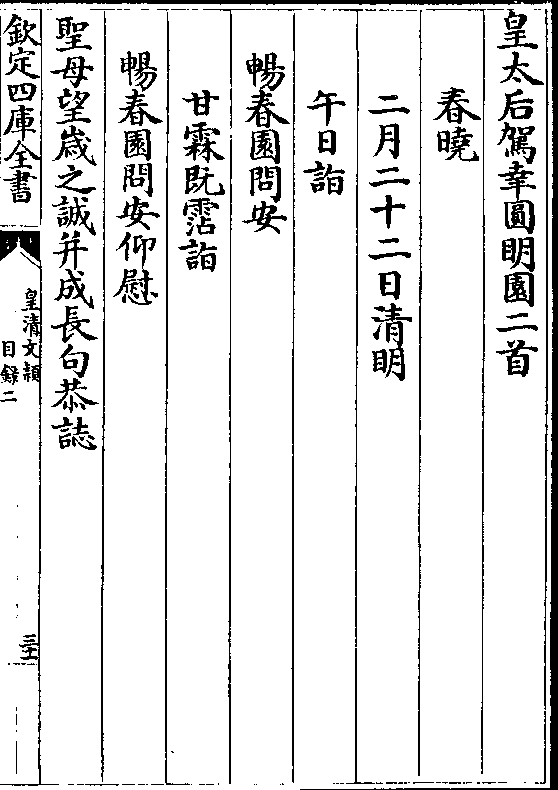 皇太后駕幸圓明園二首
春曉
二月二十二日清明
午日詣
暢春園問安
甘霖既霑詣
暢春園問安仰慰
聖母望歲之誠并成長句恭誌
欽定四庫全書
皇清文穎
目錄二
三十